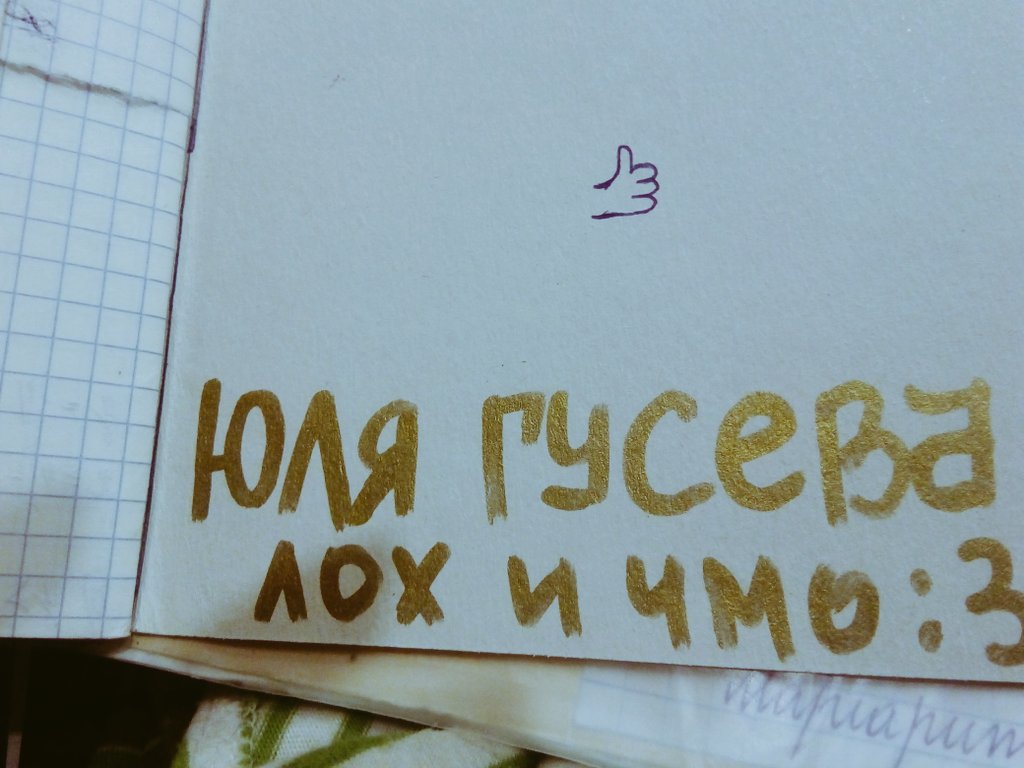 Юля Гусева
лох и чмо :3